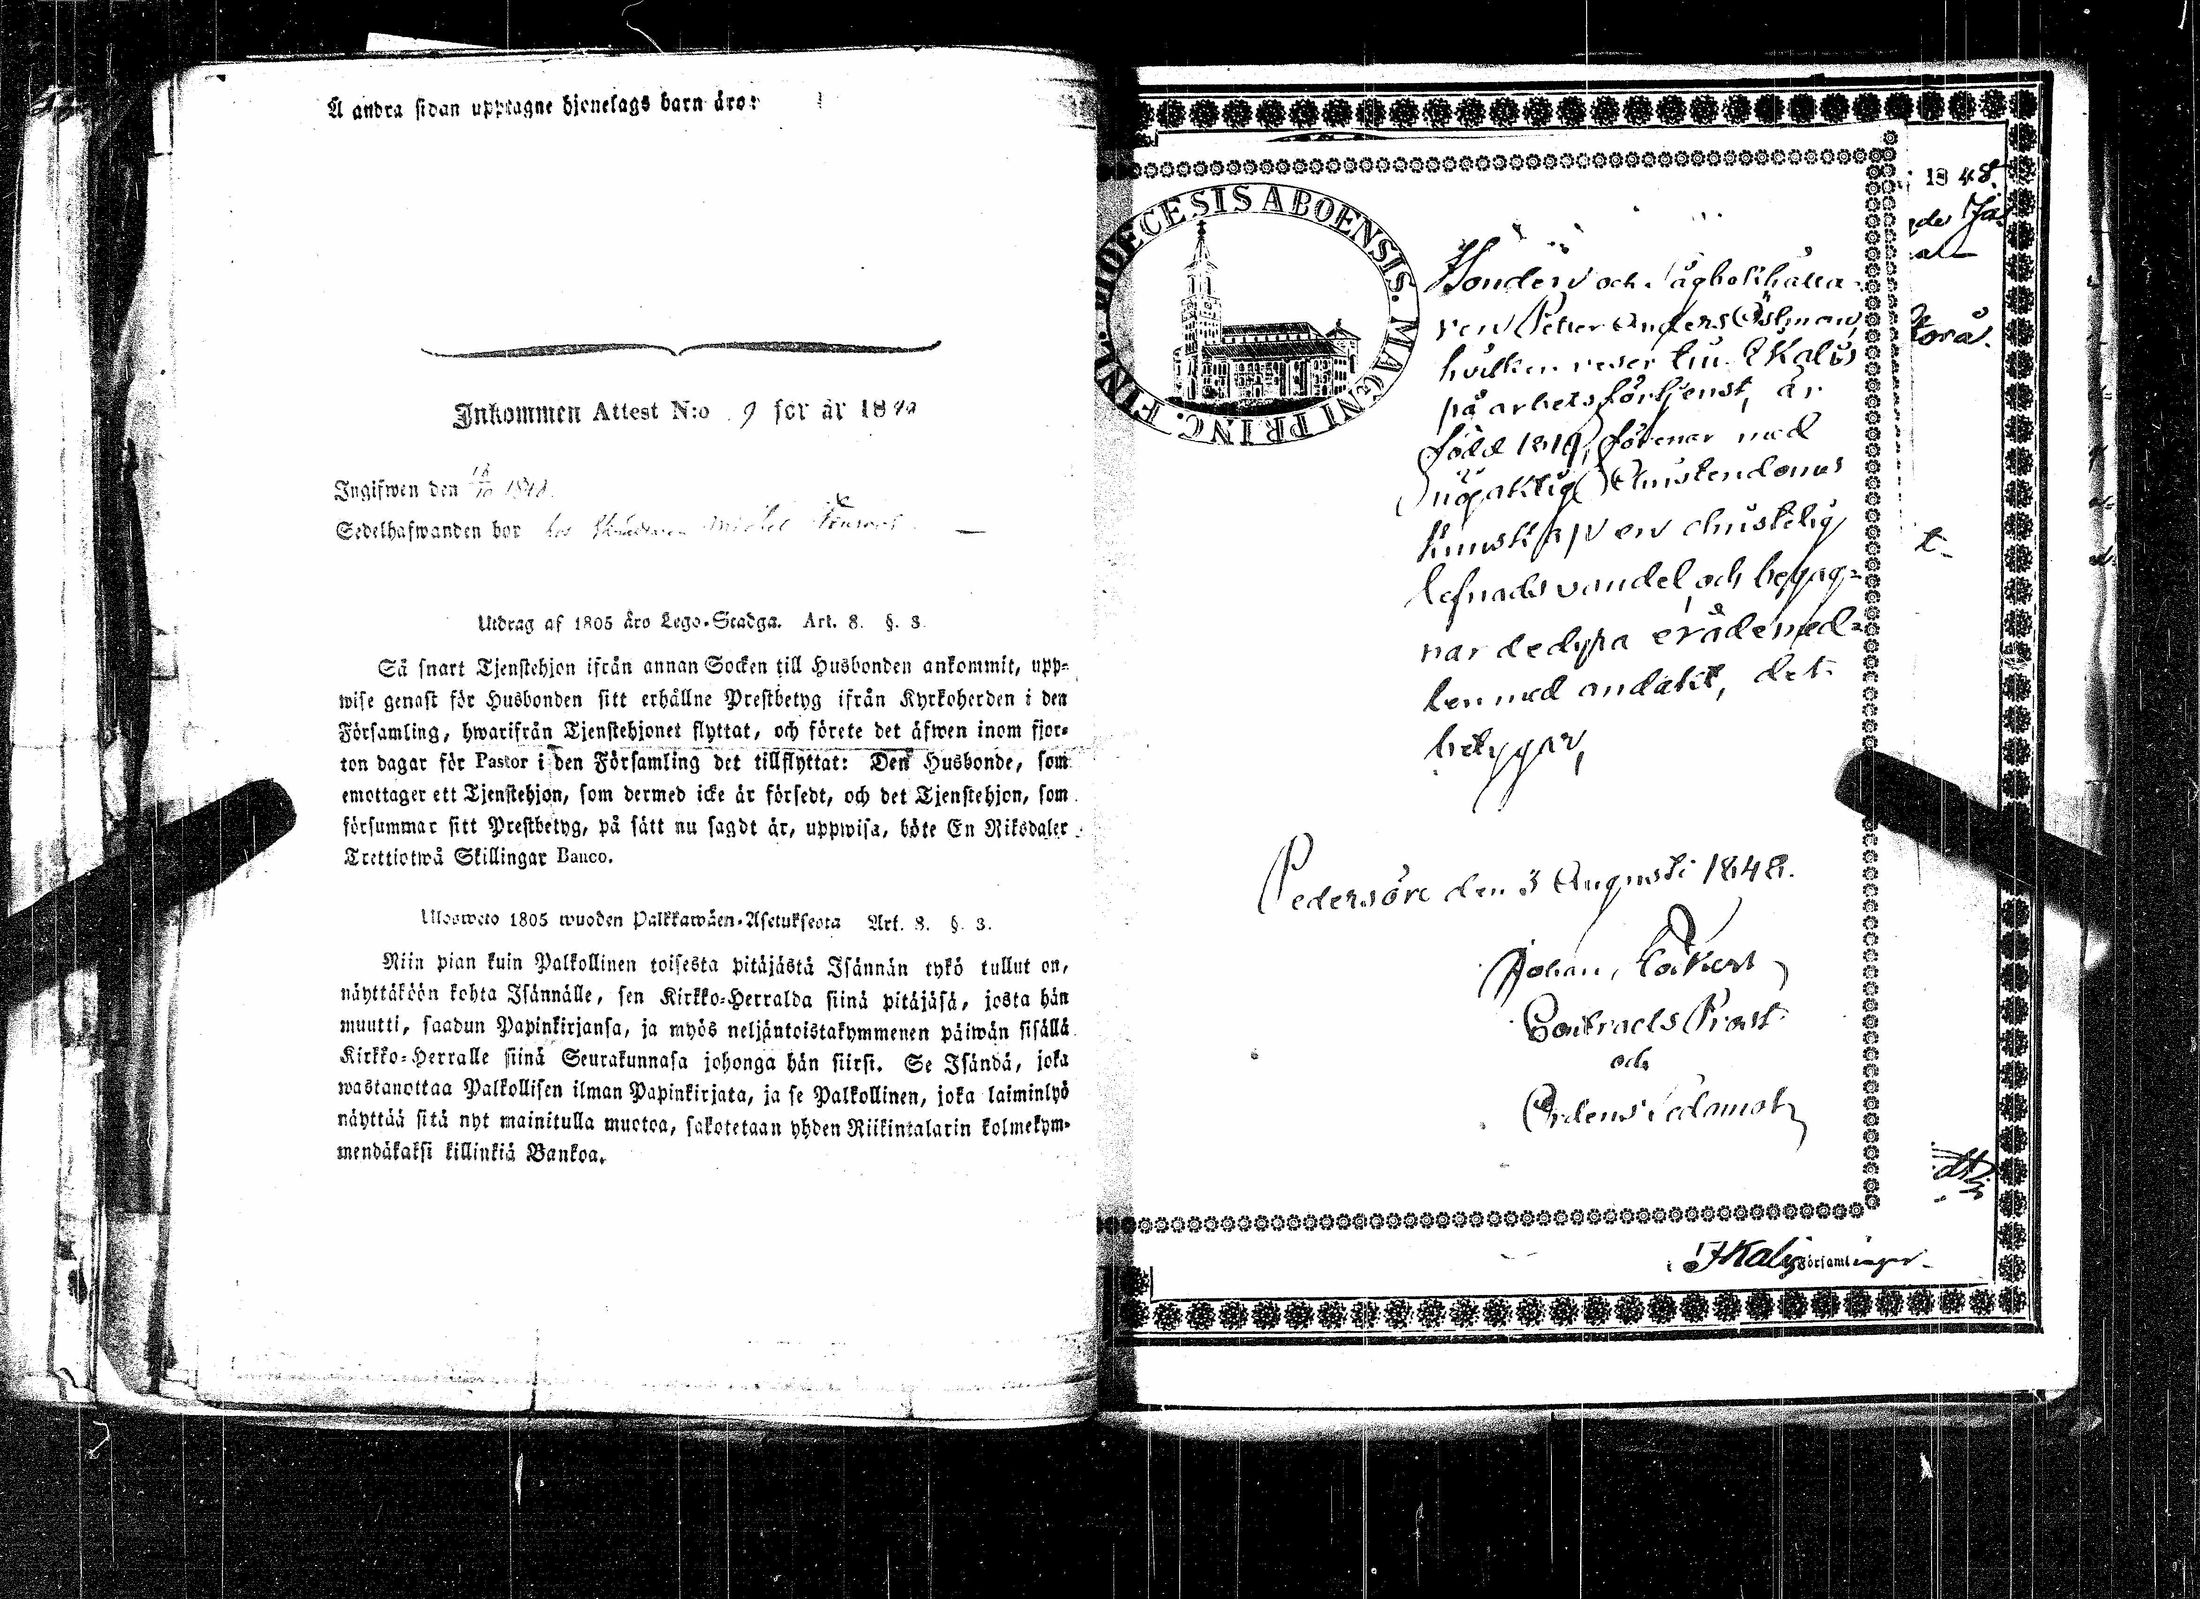 Å andra sidan upptagne hjonelags barn äro:
Inkommen Attest N:o 9 för år 18
Ingifwen den 1848.
Sedelhafwanden bor hos Michel
Utdrag af 1805 års Lego-Stadga. Art. 8. §. 3.
Så snart Tjenstehjon ifrån annan Socken till Husbonden ankommit, upp-
wise genast för Husbonden sitt erhållne Prestbetyg ifrån Kyrkoherden i den
Församling, hwarifrån Tjenstehjonet flyttat, och förete det äfwen inom fjor-
ton dagar för Pastor i den Församling det tillflyttat: Den Husbonde, som
emottager ett Tjenstehjon, som dermed icke är försedt, och det Tjenstehjon, som
försummar sitt Prestbetyg, på sätt nu sagdt är, uppwisa, böte En Riksdaler
Trettiotwå Skillingar Banco.
Ulosweto 1805 wuoden Palkkawäen-Asetuksesta Art. 8. §. 3.
Niin pian kuin Palkollinen toisesta pitäjästä Isännän tykö tullut on,
näyttäköön kohta Isännälle, sen Kirkko-Herralda siinä pitäjäsä, josta hän
muutti, saadun Papinkirjansa, ja myös neljäntoistakymmenen päiwän sisällä
Kirkko-Herralle siinä Seurakunnasa johonga hän siirsi. Se Isändä, joka
wastanottaa Palkollisen ilman Papinkirjata, ja se Palkollinen, joka laiminlyö
näyttää sitä nyt mainitulla muotoa, sakotetaan yhden Riikintalarin kolmekym-
mendäkaksi killinkiä Bankoa.
DIOECESIS ABOENSIS. MAGNI PRINC. FINL.
Bonden och
ren Petter Anders Östman,
hvilken reser till Kalis
på arbetsförtjenst, är
född 1819, förenar med
nöjaktig Christendoms
kunskap en christelig
lefnadsvandel och begag-
nar de dyra nådemed-
len med andakt, det
betygar,
Pedersöre den 3 Augusti 1848.
Johan
Contracts Prost
och
Ordens Ledamot
1848.
Församlingar